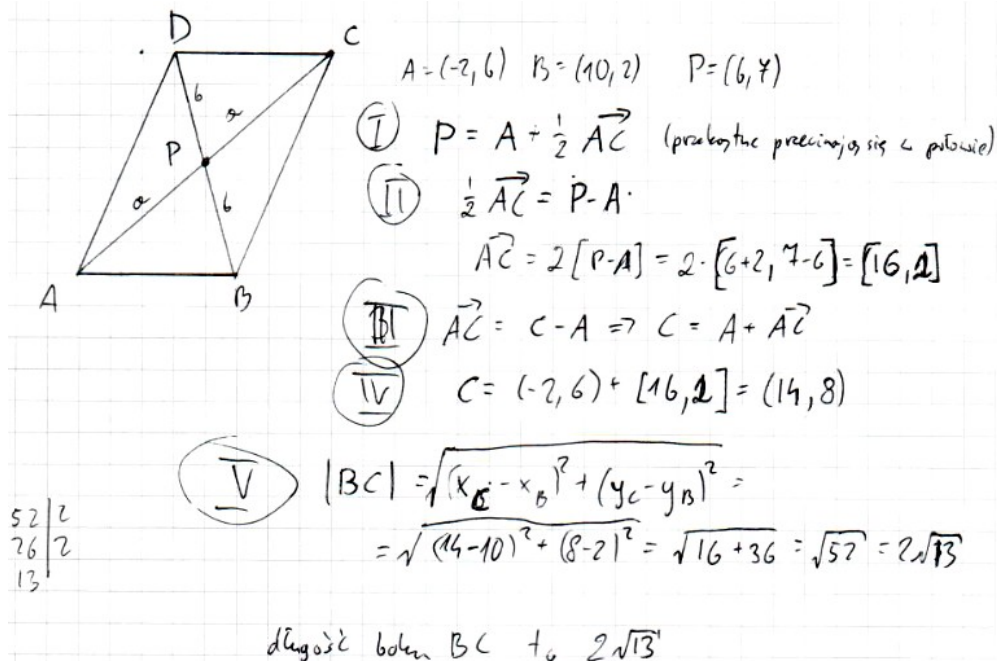 D C
A = (-2, 6) B = (10, 2) P = (6, 7)
b a
P
a b
A B
I P = A + 1/2 AC→ (przekątne przecinają się w połowie)
II 1/2 AC→ = P - A
AC→ = 2[P-A] = 2·[6+2, 7-6] = [16, 2]
III AC→ = C - A => C = A + AC→
IV C = (-2, 6) + [16, 2] = (14, 8)
V |BC| = √((x_C - x_B)² + (y_C - y_B)²) =
= √((14-10)² + (8-2)²) = √(16 + 36) = √52 = 2√13
52 | 2
26 | 2
13 |
długość boku BC to 2√13